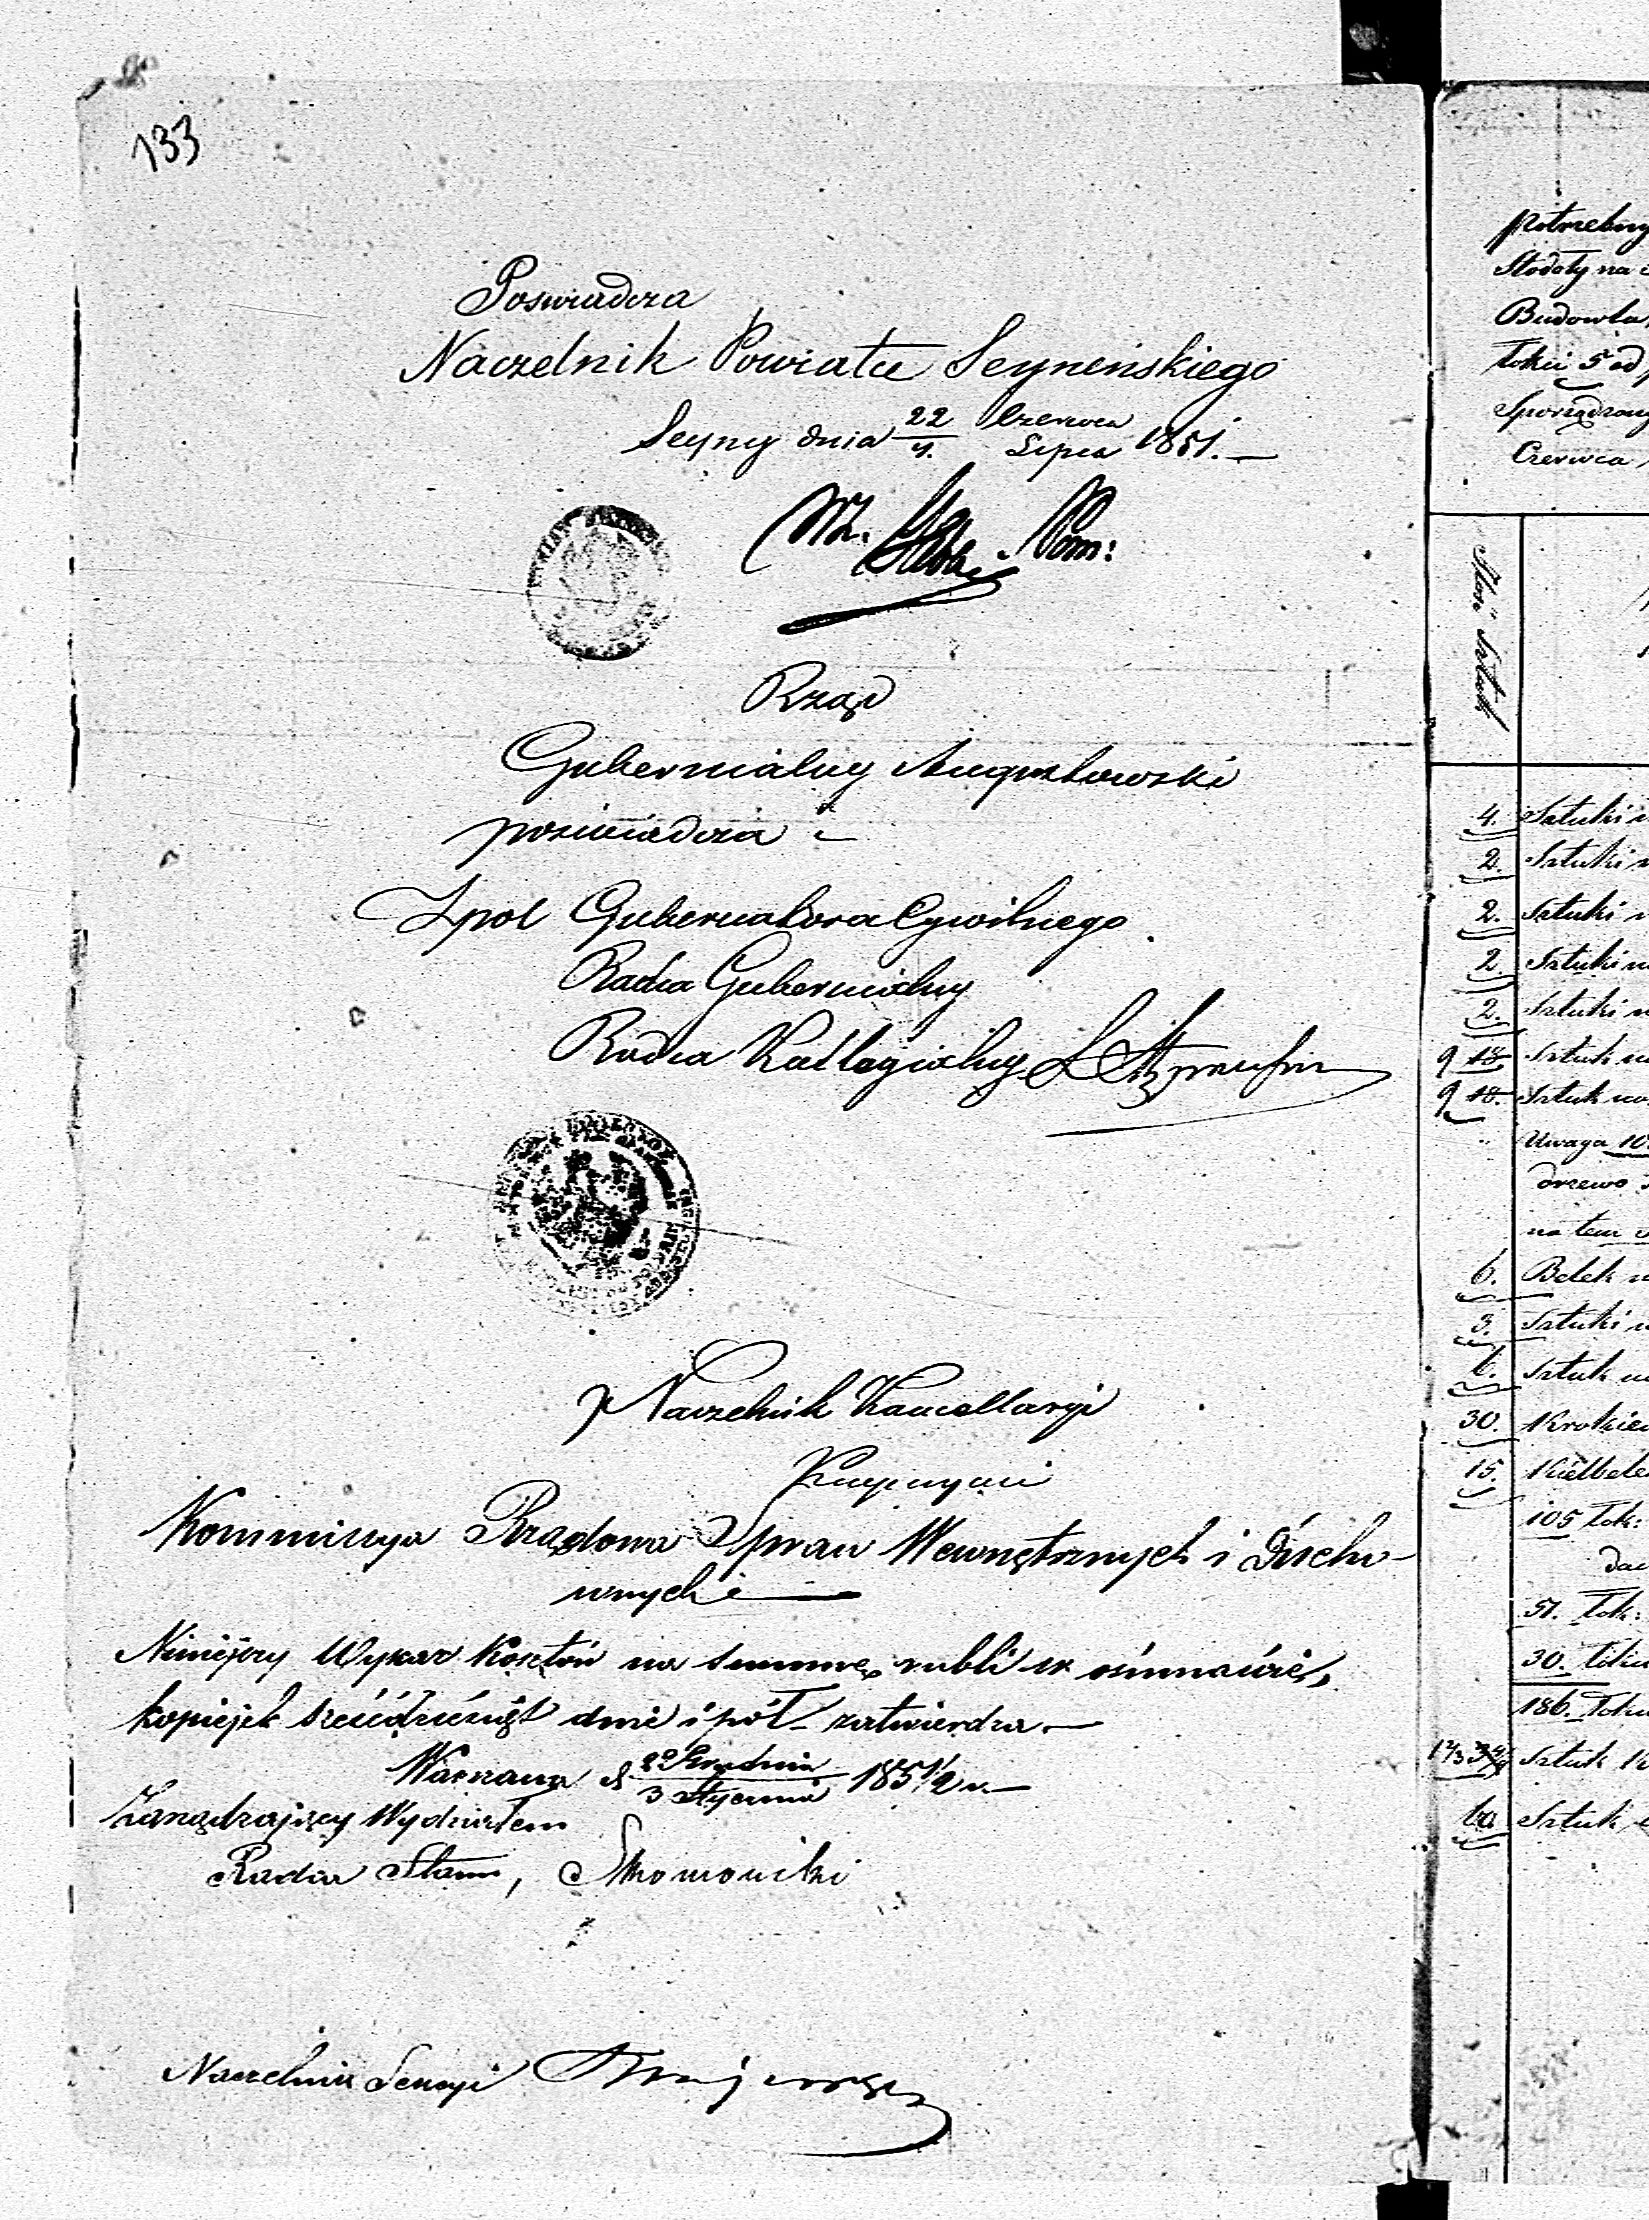 133
Poswiadcza
Naczelnik Powiatu Seyneńskiego
Seyny dnia 22/4. Czerwca/Lipca 1851.
Wz. Pom:
Rząd
Gubernialny Augustowski
poświadcza
Gubernatora Cywilnego
Radca Gubernialny
Radca Kollegialny
Naczelnik Kancellaryi
Kommissya Rządowa Spraw Wewnętrznych i Ducho-
wnych
Niniejszy Wykaz Kosztów na summę rubli sr ośmnaście,
kopiejek sześćdziesiąt dwie i pół zatwierdza
Warszawa d 22 Grudnia/3 Stycznia 185 1/2 r.
Zarządzający Wydziałem
Radca Stanu,
Naczelnik Sekcyi
potrzebny
Stodoły na
Budowla
łokci 5 od
Sporządzony
Czerwca
Ilość Sztuk
4. Sztuki
2. Sztuki
2. Sztuki
2. Sztuki
2. Sztuki
9 18 Sztuk
9 18. Sztuk
Uwaga 10
drzewo
na tem
6. Belek
3. Sztuki
6. Sztuk
30. Krokiew
15.
105 łok:
51. łok:
30. łokci
186. łokci
Sztuk
Sztuk